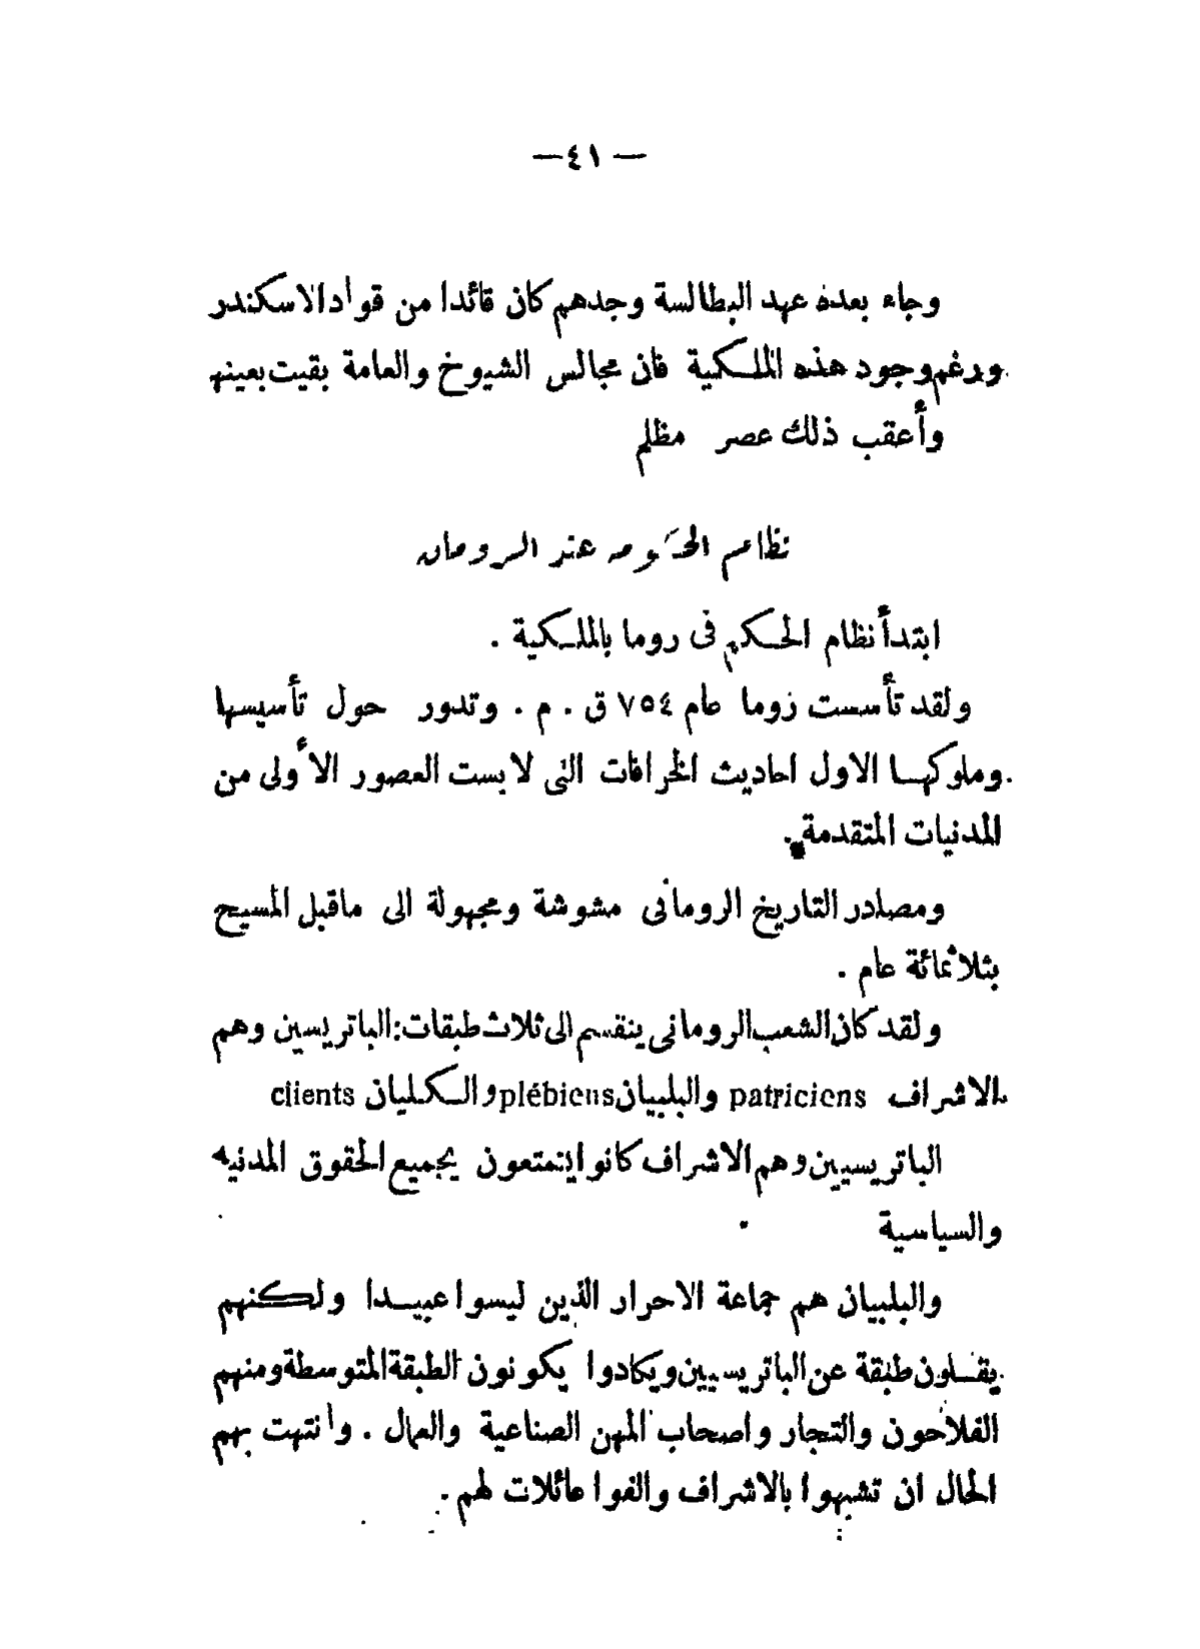 — ٤١ —
وجاء بعده عهد البطالسة وجدهم كان قائدا من قواد الاسكندر
ورغم وجود هذه الملكية فان مجالس الشيوخ والعامة بقيت بعينها
وأعقب ذلك عصر مظلم
نظام الحكومه عند الرومان
ابتدأ نظام الحكم فى روما بالملكية .
ولقد تأسست روما عام ٧٥٤ ق . م . وتدور حول تأسيسها
وملوكها الاول احاديث الخرافات التى لابست العصور الأولى من
المدنيات المتقدمة .
ومصادر التاريخ الرومانى مشوشة ومجهولة الى ماقبل المسيح
بثلاثمائة عام .
ولقد كان الشعب الرومانى ينقسم الى ثلاث طبقات: الباتريسين وهم
الاشراف patriciens والبلبيان plébiens والكليان clients
الباتريسيين وهم الاشراف كانوا يتمتعون بجميع الحقوق المدنيه
والسياسية
والبلبيان هم جماعة الاحرار الذين ليسوا عبيدا ولكنهم
يقلون طبقة عن الباتريسيين ويكادوا يكونون الطبقة المتوسطة ومنهم
الفلاحون والتجار واصحاب المهن الصناعية والعمال . وانتهت بهم
الحال ان تشبهوا بالاشراف والفوا عائلات لهم .